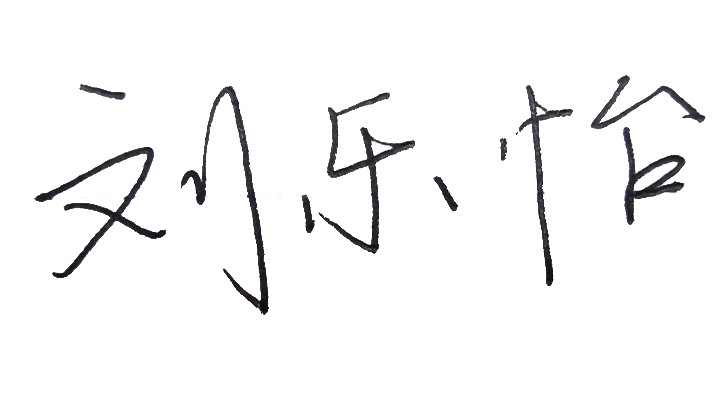 刘乐怡